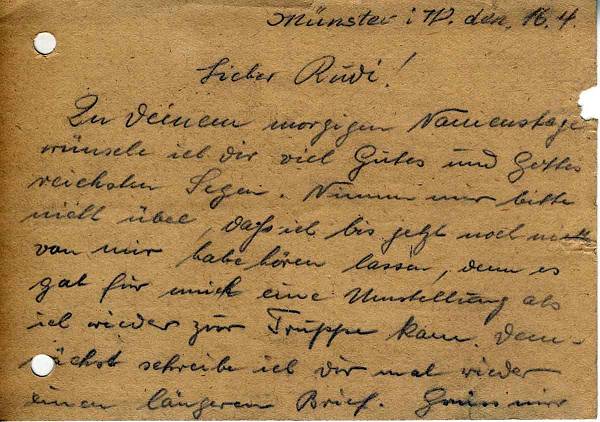 Münster i W. den, 16.4.
Lieber Rudi!
Zu Deinem morgigen Namenstage
wünsche ich dir viel Gutes und Gottes
reichsten Segen. Nimm mir bitte
nicht übel, daß ich bis jetzt noch nicht
von mir habe hören lassen, denn es
gab für mich eine Umstellung als
ich wieder zur Truppe kam. Dem-
nächst schreibe ich dir mal wieder
einen längeren Brief. Grüss mir